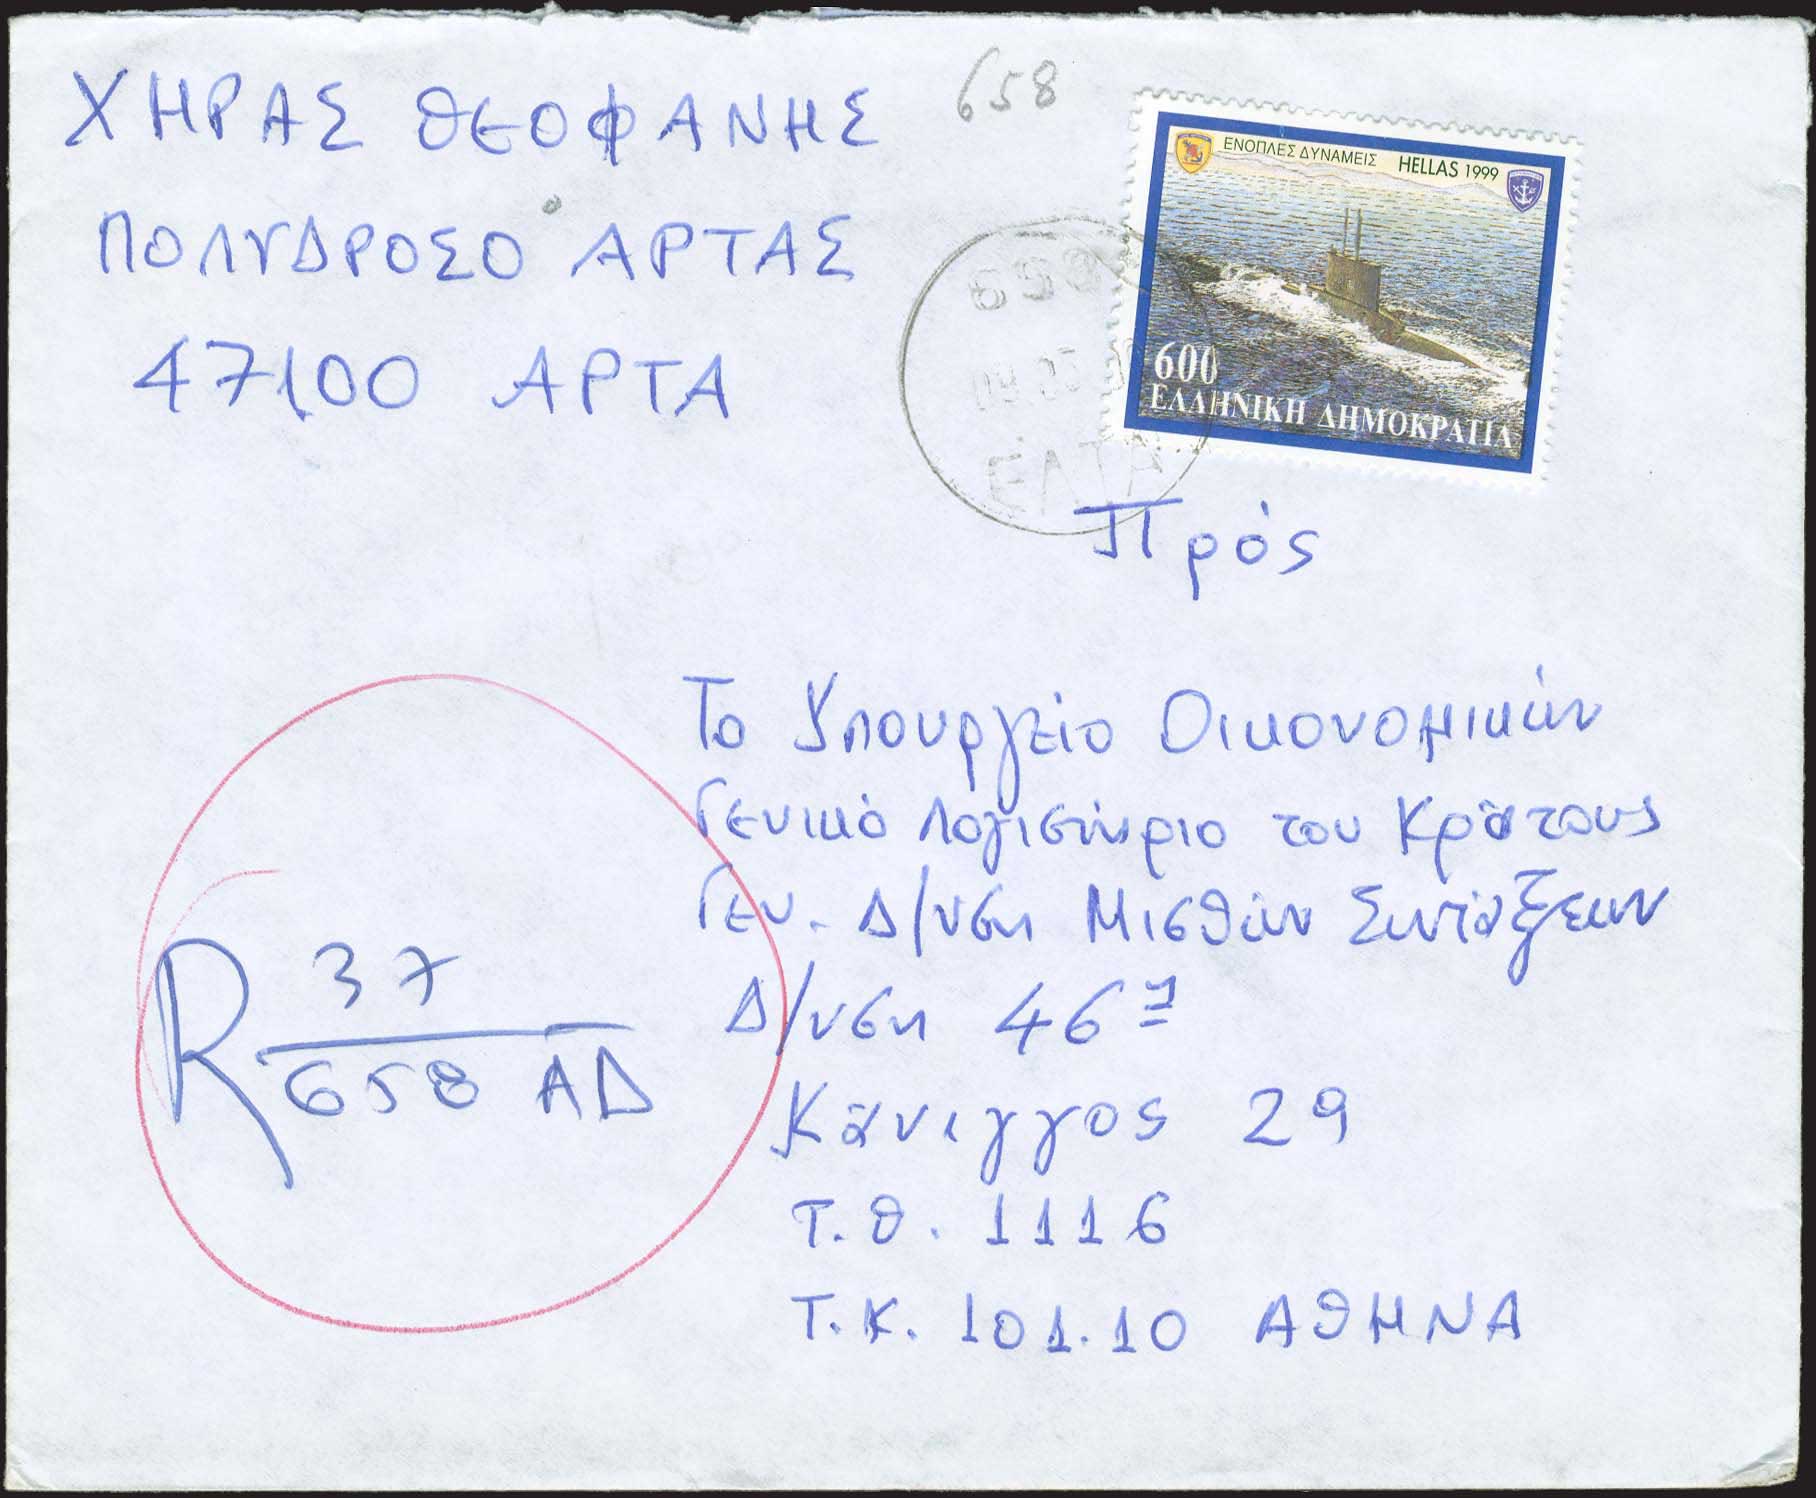 ΧΗΡΑΣ ΘΕΟΦΑΝΗΣ
ΠΟΛΥΔΡΟΣΟ ΑΡΤΑΣ
47100 ΑΡΤΑ
658
ΕΝΟΠΛΕΣ ΔΥΝΑΜΕΙΣ HELLAS 1999
600
ΕΛΛΗΝΙΚΗ ΔΗΜΟΚΡΑΤΙΑ
658
ΕΛΤΑ
Πρός
Το Υπουργείο Οικονομικών
Γενικό Λογιστήριο του Κράτους
Γεν. Δ/νση Μισθών Συντάξεων
Δ/νση 46η
Κάνιγγος 29
Τ.Θ. 1116
Τ.Κ. 101.10 ΑΘΗΝΑ
R 37
658 ΑΔ